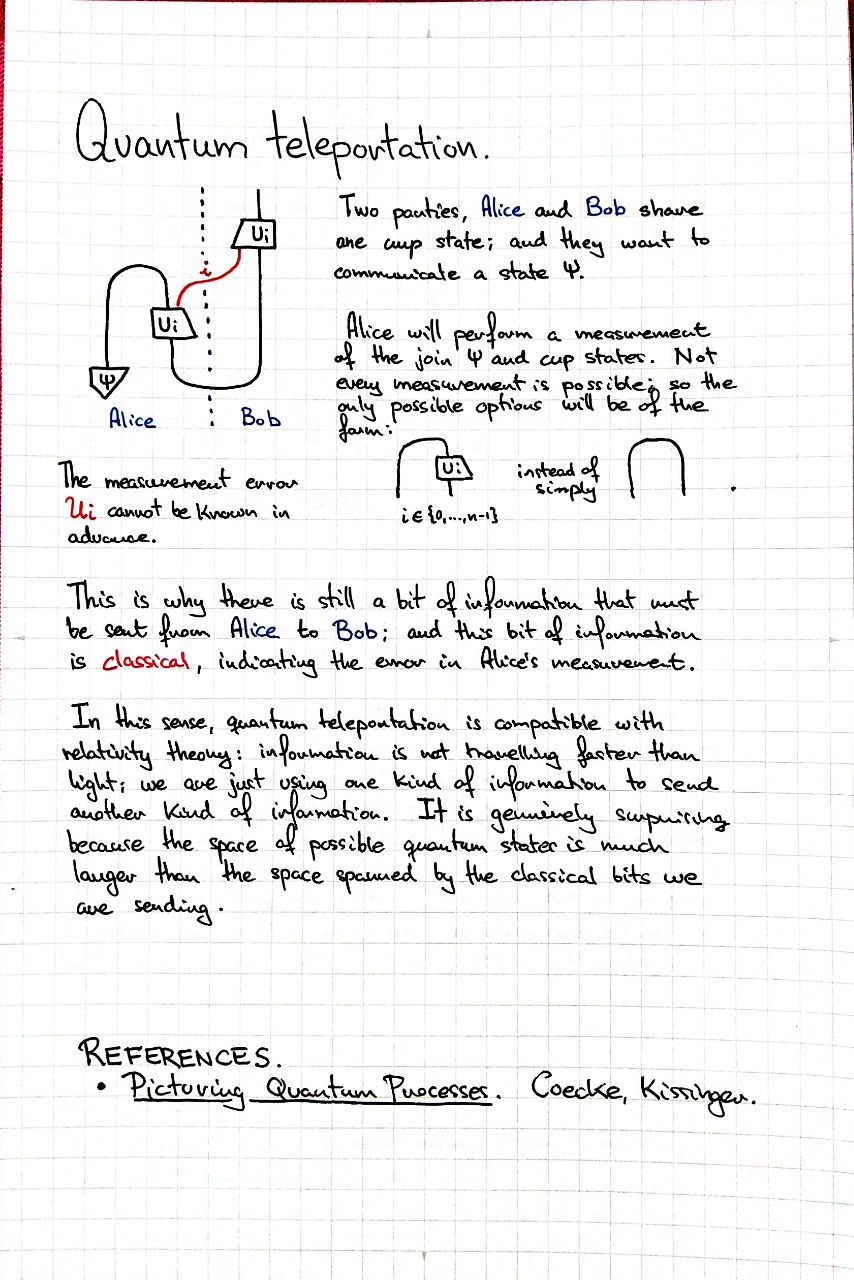 Quantum teleportation.
Ui
i
Ui
Ψ
Alice Bob
Two parties, Alice and Bob share
one cup state; and they want to
communicate a state Ψ.
Alice will perform a measurement
of the join Ψ and cup states. Not
every measurement is possible; so the
only possible options will be of the
form:
Ui
i ∈ {0,...,n-1}
instead of
simply
.
The measurement error
Ui cannot be known in
advance.
This is why there is still a bit of information that must
be sent from Alice to Bob; and this bit of information
is classical, indicating the error in Alice's measurement.
In this sense, quantum teleportation is compatible with
relativity theory: information is not travelling faster than
light; we are just using one kind of information to send
another kind of information. It is genuinely surprising
because the space of possible quantum states is much
larger than the space spanned by the classical bits we
are sending.
REFERENCES.
• Picturing Quantum Processes. Coecke, Kissinger.